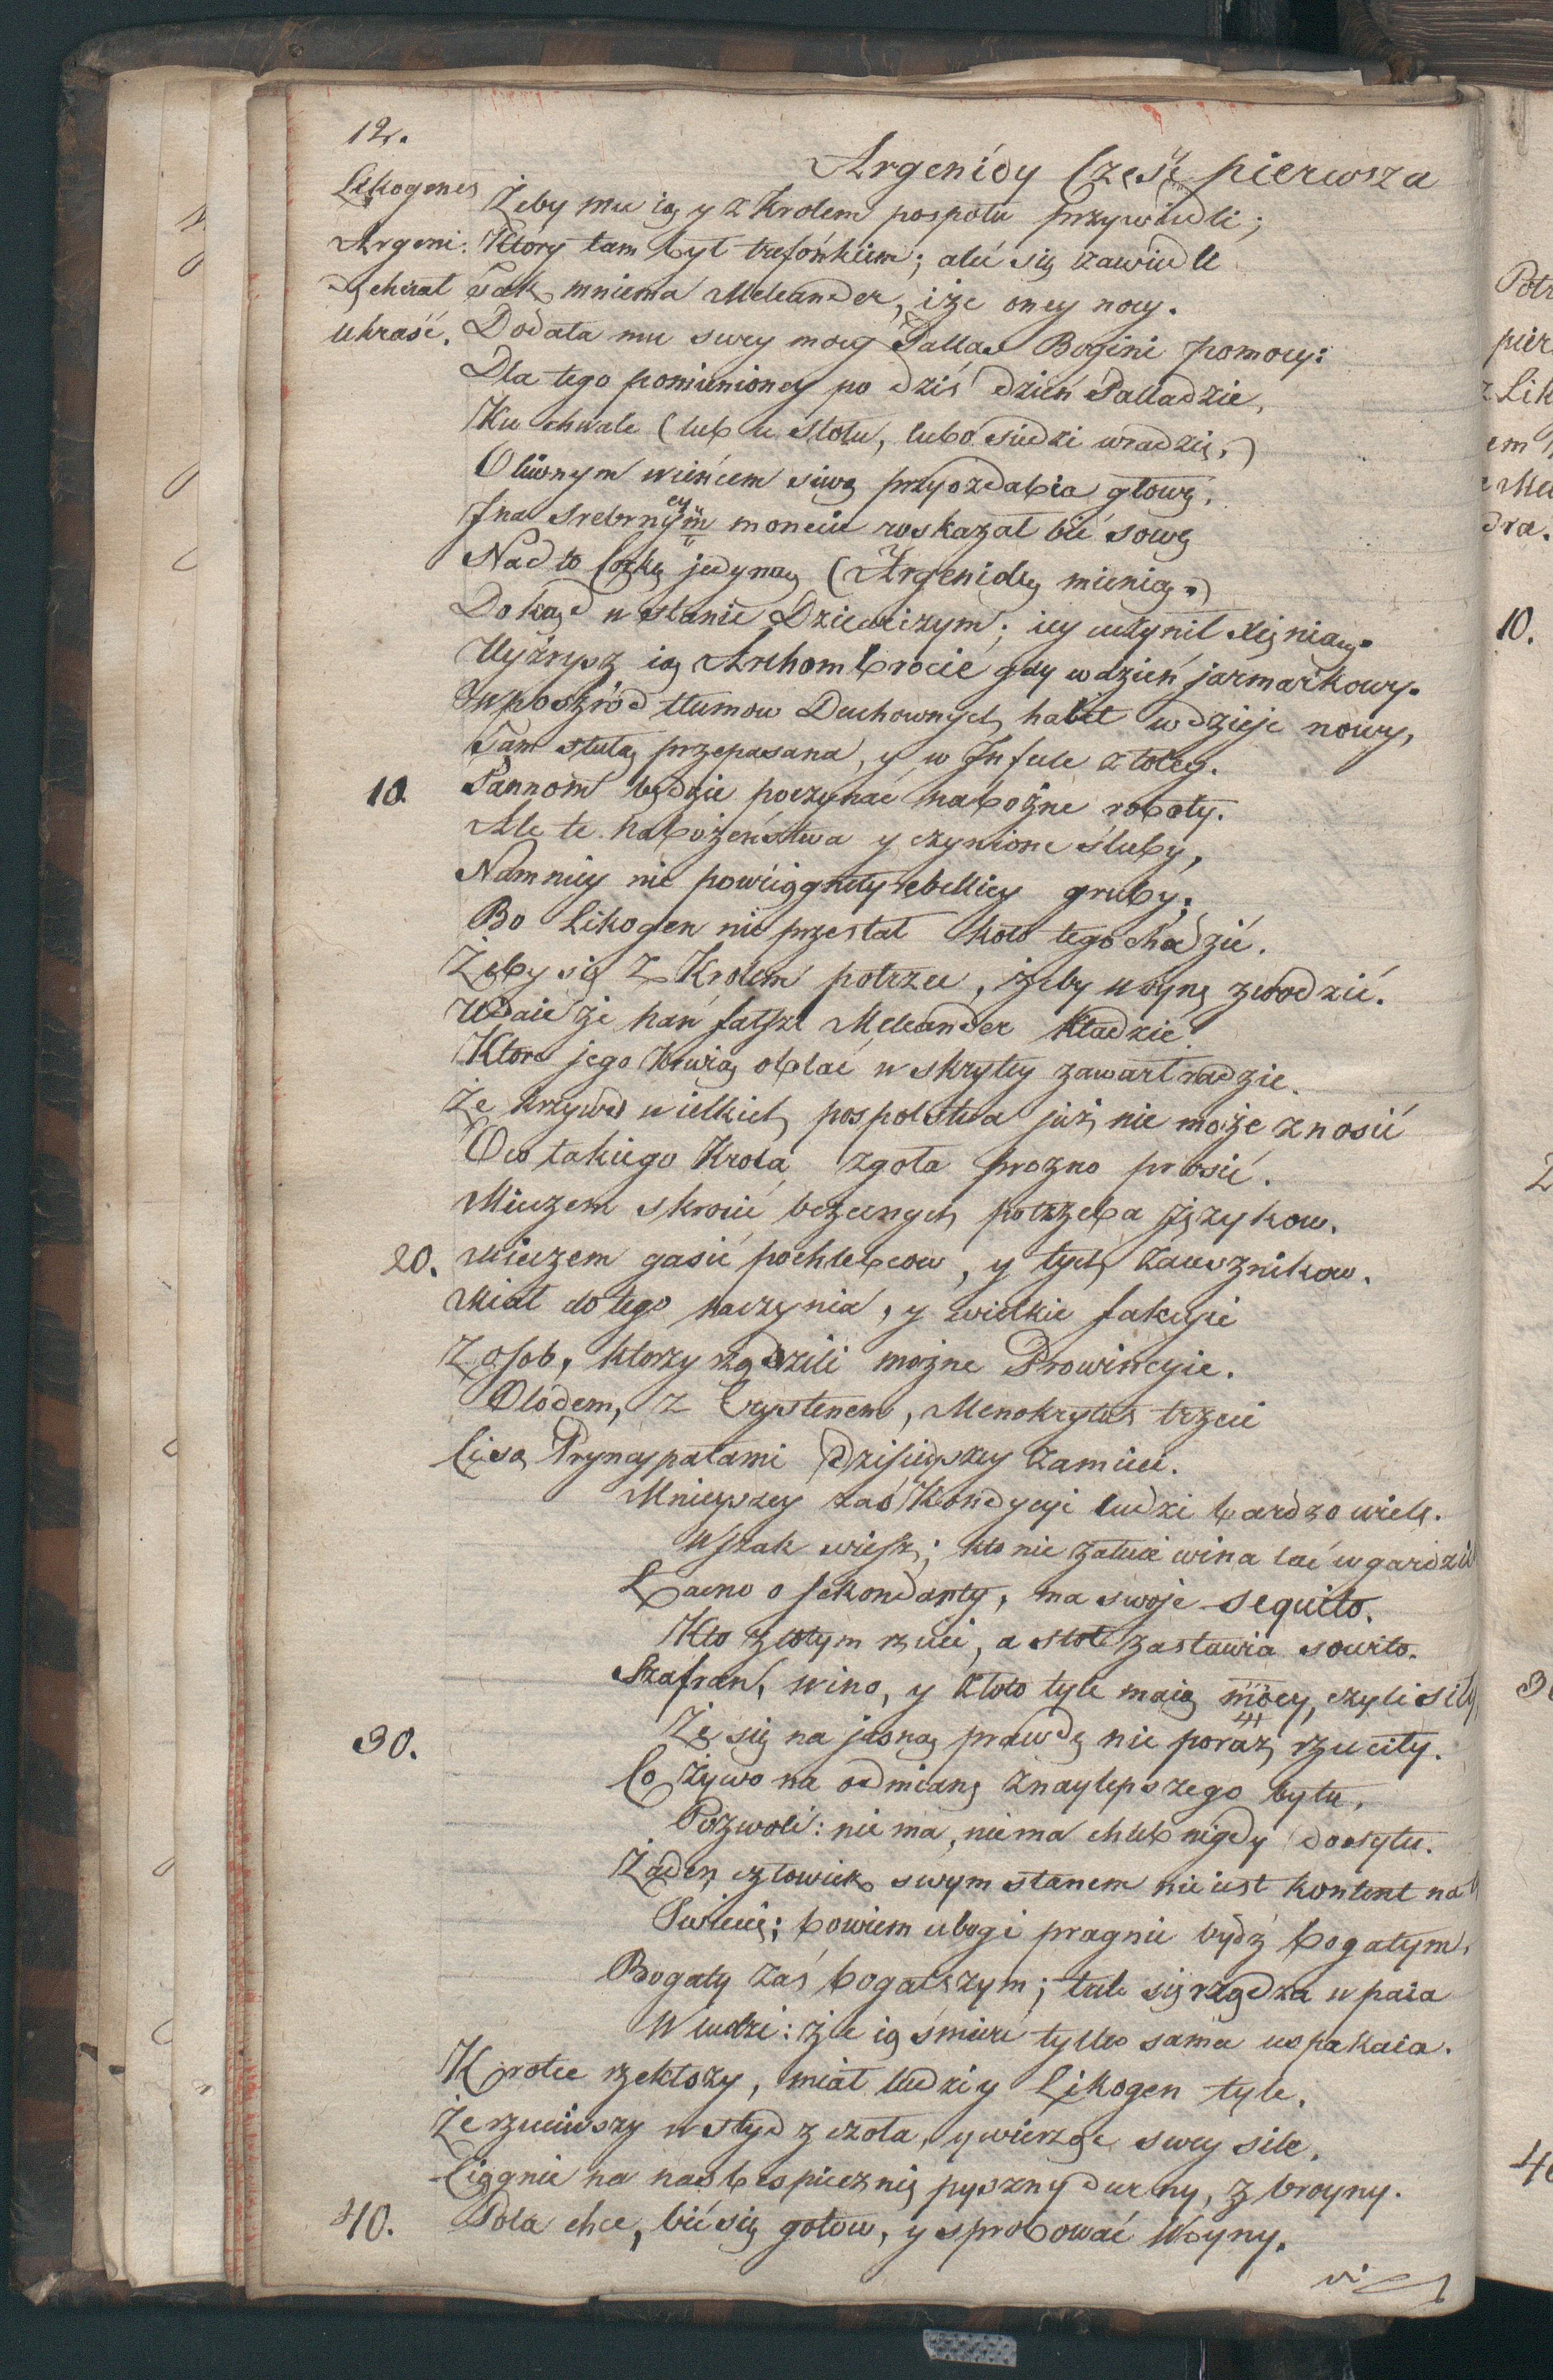 12.
Argenidy Część pierwsza
Likogenes
Argeni:
dę chciał
ukraść.
Żeby mu ią y z Krolem pospołu przywiedli;
Który tam był trefónkiem; aleć się zawiedli
Jak mniema Meleander, iże oney nocy.
Dodała mu swey mocy Pallas Bogini pomocy:
Dla tego pomienioney po dziś dzień Palladzie,
Ku chwale (lub u stołu, lubo siedzi w radzie,)
Oliwnym wieńcem siwą przyozdabia głowę,
I na srebrney monecie roskazał bić sowę
Nad to Corkę jedyną (Argenidę mienię.)
Dokąd w stanie Dziewiczym; iey uczynił Xięnią.
Uyźrysz ią Archombrocie gdy w dzień jarmarkowy.
W pośrzód tłumow Duchownych habit wdzieje nowy,
Tam stułą przepasana, y w Infule złotey.
10. Pannom będzie poczynać nabożne roboty.
Ale te nabożeństwa y czynione śluby,
Namniey nie powciągnęły rebelliey gruby;
Bo Likogen nie przestał koło tego chodzić.
Żeby się z Krolem potrzeć, żeby woynę zwodzić.
Udaie że nań fałsze Meleander kładzie.
Ktore jego krwią oblać w skrytey zawarł radzie.
Że krzywd wielkich pospolstwa już nie może znosić
O co takiego Krola zgoła prozno prosić.
Mieczem skrocić bezecnych potrzeba języków.
20. Mieczem gasić pochlebcow, y tych zauszników.
Miał do tego naczynia, y wielkie fakcyie
Z osob, ktorzy rządzili możne Prowincyie.
Olodem, z Erystenem, Menokrytes trzeci
Ci są Pryncypałami dzisieyszey zamieci.
Mnieyszey zaś Kondycyi ludzi bardzo wiele.
Wszak wiesz; kto nie żałuie wina lać w gardziele
Łacno o sekondanty, ma swoje sequito.
Kto złotym rzuci, a stół zastawia sowito.
Szafran, wino, y złoto tyle maią mocy, czyli siły,
30. Że się na jasną prawdę nie poraz rzuciły.
Co żywo na odmianę znaylepszego bytu,
Pozwoli: nie ma, nie ma chleb nigdy dosytu.
Żaden człowiek swym stanem nie iest kontent na
Świecie; bowiem ubogi pragnie bydź bogatym,
Bogaty zaś bogatszym; tak się rządza wpaia
W ludzi: że ią śmierć tylko sama uspakaia.
Krotce rzekłszy, miał ludzi y Likogen tyle,
Że rzuciwszy wstyd z czoła, y wierząc swey sile,
Ciągnie na nas bespiecznie pyszny durny, zbroyny.
40. Pola chce, bić się gotow, y sprobować Woyny.